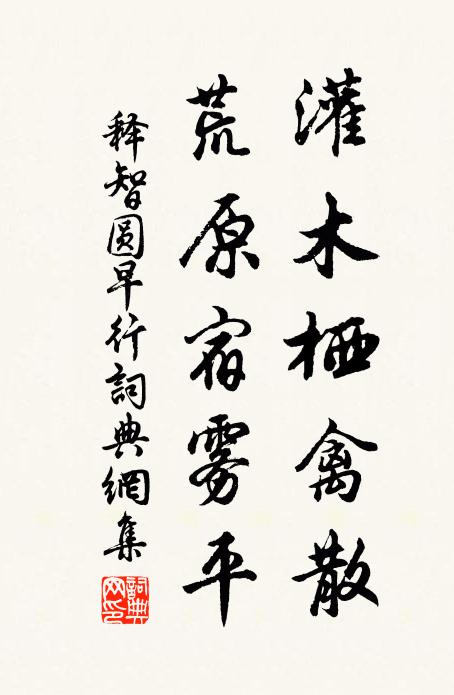 灌木栖禽散
荒原宿雾平
释智圆早行詞典網集
詞典网印